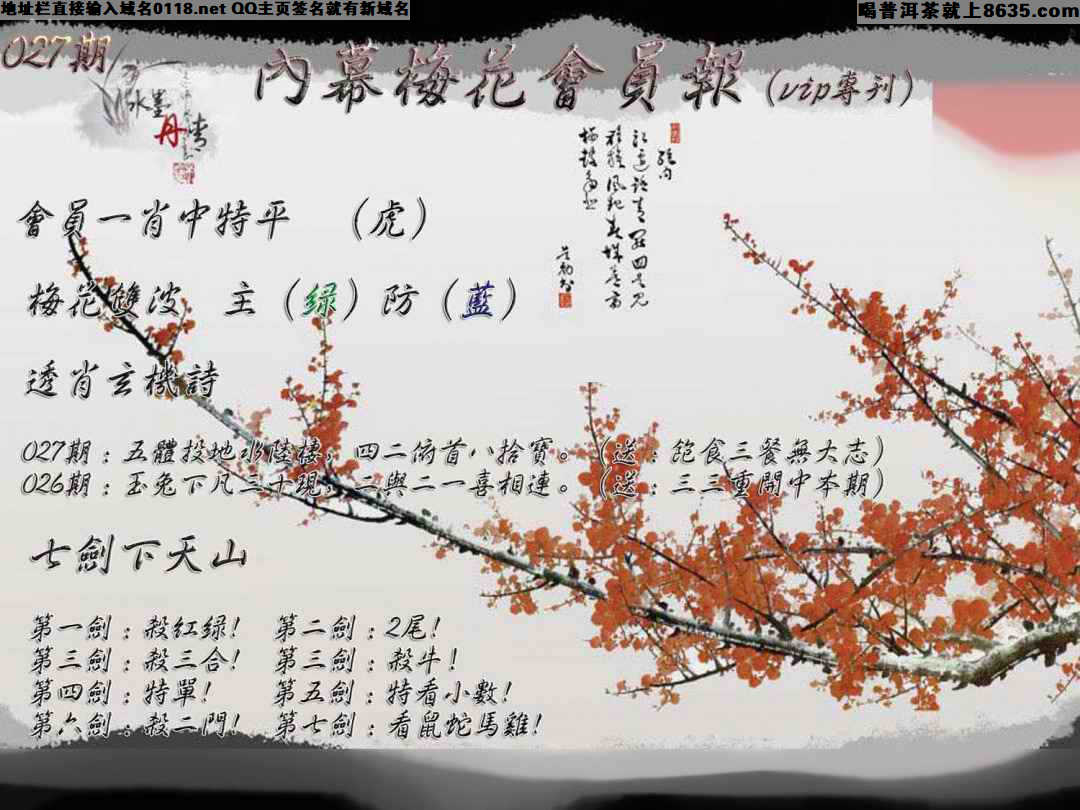 地址栏直接输入域名0118.net QQ主页签名就有新域名
喝普洱茶就上8635.com
027期
水墨丹青
內幕梅花會員報(vip專刊)
會員一肖中特平 (虎)
梅花雙波 主(绿)防(藍)
透肖玄機詩
027期：五體投地水陸棲，四二俯首八拾寶。(送：飽食三餐無大志)
026期：玉兔下凡三十現，二與二一喜相連。(送：三三重開中本期)
七劍下天山
第一劍：殺紅绿! 第二劍：2尾!
第三劍：殺三合! 第三劍：殺牛!
第四劍：特單! 第五劍：特看小數!
第六劍：殺二門! 第七劍：看鼠蛇馬雞!